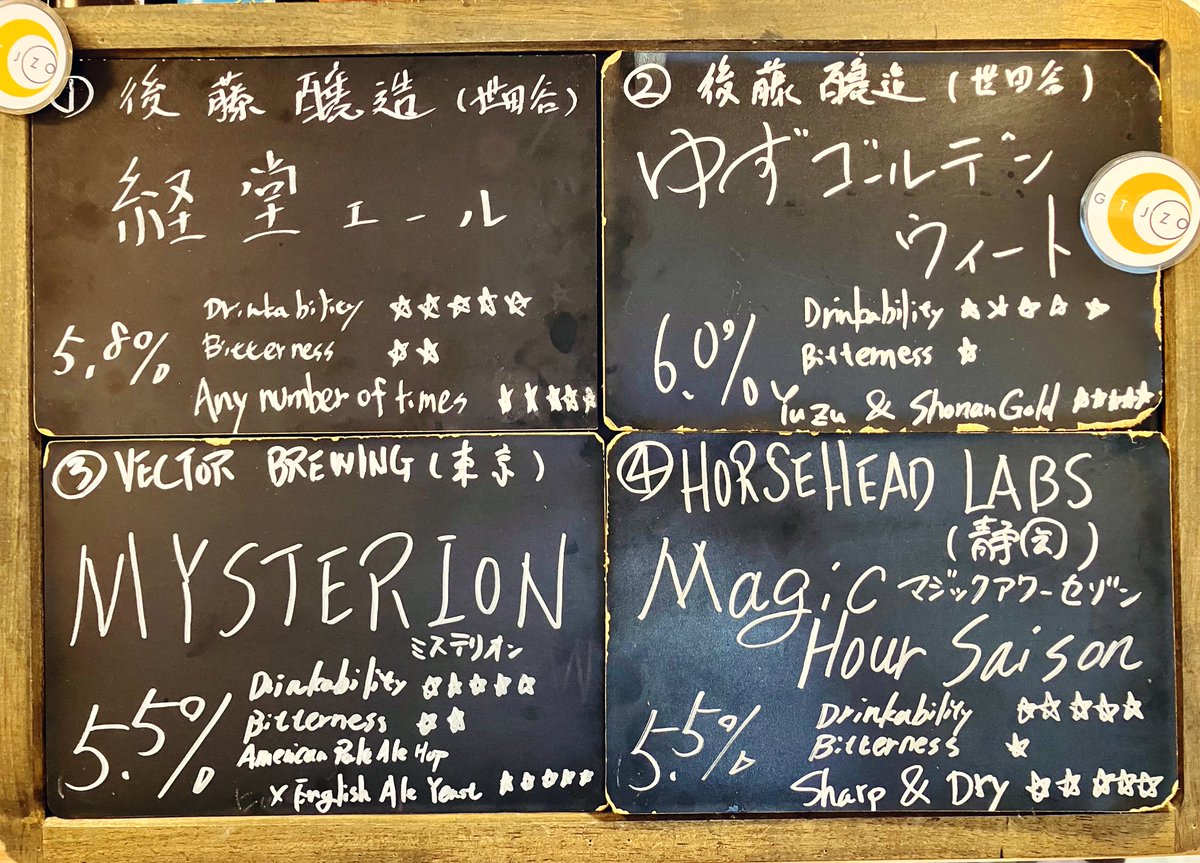 ① 後藤醸造 (世田谷)
経堂エール
5.8%
Drinkability ☆☆☆☆☆
Bitterness ☆☆
Any number of times ☆☆☆☆☆
② 後藤醸造 (世田谷)
ゆずゴールデン
ウィート
6.0%
Drinkability ☆☆☆☆☆
Bitterness ☆
Yuzu & Shonan Gold ☆☆☆☆☆
③ VECTOR BREWING (東京)
MYSTERION
ミステリオン
5.5%
Drinkability ☆☆☆☆☆
Bitterness ☆☆
American Pale Ale Hop
× English Ale Yeast ☆☆☆☆☆
④ HORSEHEAD LABS
(静岡)
Magic マジックアワーセゾン
Hour Saison
5.5%
Drinkability ☆☆☆☆☆
Bitterness ☆
Sharp & Dry ☆☆☆☆☆
GTJZO